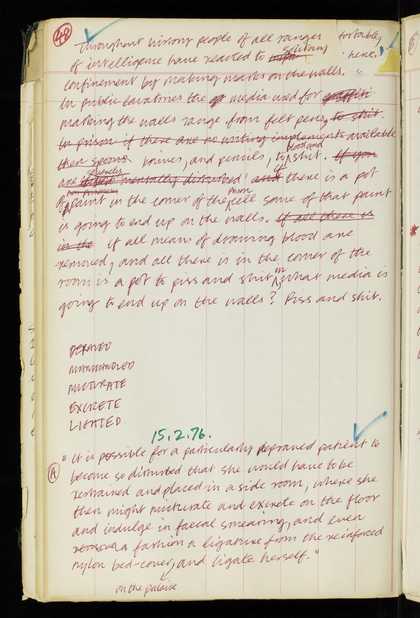 48
Throughout history people of all ranges
of intelligence have reacted to solitary
confinement by making marks on the walls.
In public lavatories the media used for graffiti
marking the walls range from felt pens, to shit.
In prison if there are no writing implements available
then spoons knives, and pencils, to blood and shit. If you
are severely mentally disturbed and if there is a pot
of paint in the corner of the room cell some of that paint
is going to end up on the walls. If all there is
in the if all means of drawing blood are
removed, and all there is in the corner of the
room is a pot to piss and shit in, what media is
going to end up on the walls? Piss and shit.
DEPRAVED
MANHANDLED
MICTURATE
EXCRETE
LIGATED
15.2.76.
A
"It is possible for a particularly depraved patient to
become so disturbed that she would have to be
restrained and placed in a side room, where she
then might micturate and excrete on the floor
and indulge in faecal smearing, and even
fashion a ligature from the reinforced
nylon bed-cover, and ligate herself."
on the